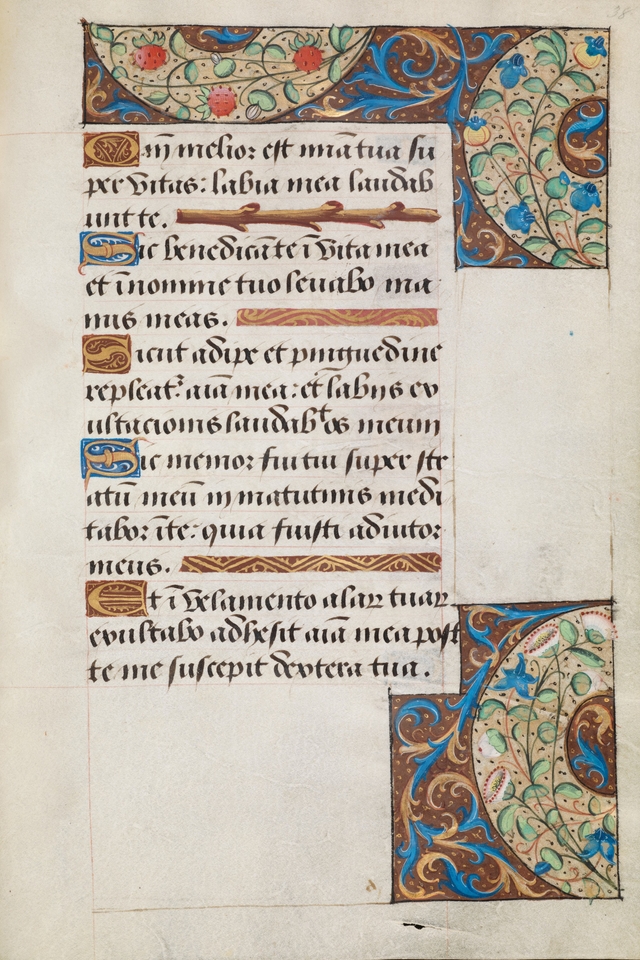 Qm̄ melior est mīa tua su
per vitas: labia mea laudab
unt te.
Sic benedicā te ī vita mea
et ī nomine tuo levabo ma
nus meas.
Sicut adipe et pinguedine
repleat᷑ aīa mea: et labijs ex
ultacionis laudabᵗ os meum
Sic memor fui tui super str
atū meū in matutinis medi
tabor ī te: quia fuisti adiutor
meus.
Et ī velamento alaꝝ tuaꝝ
exultabo adhesit aīa mea post
te me suscepit dextera tua.
38